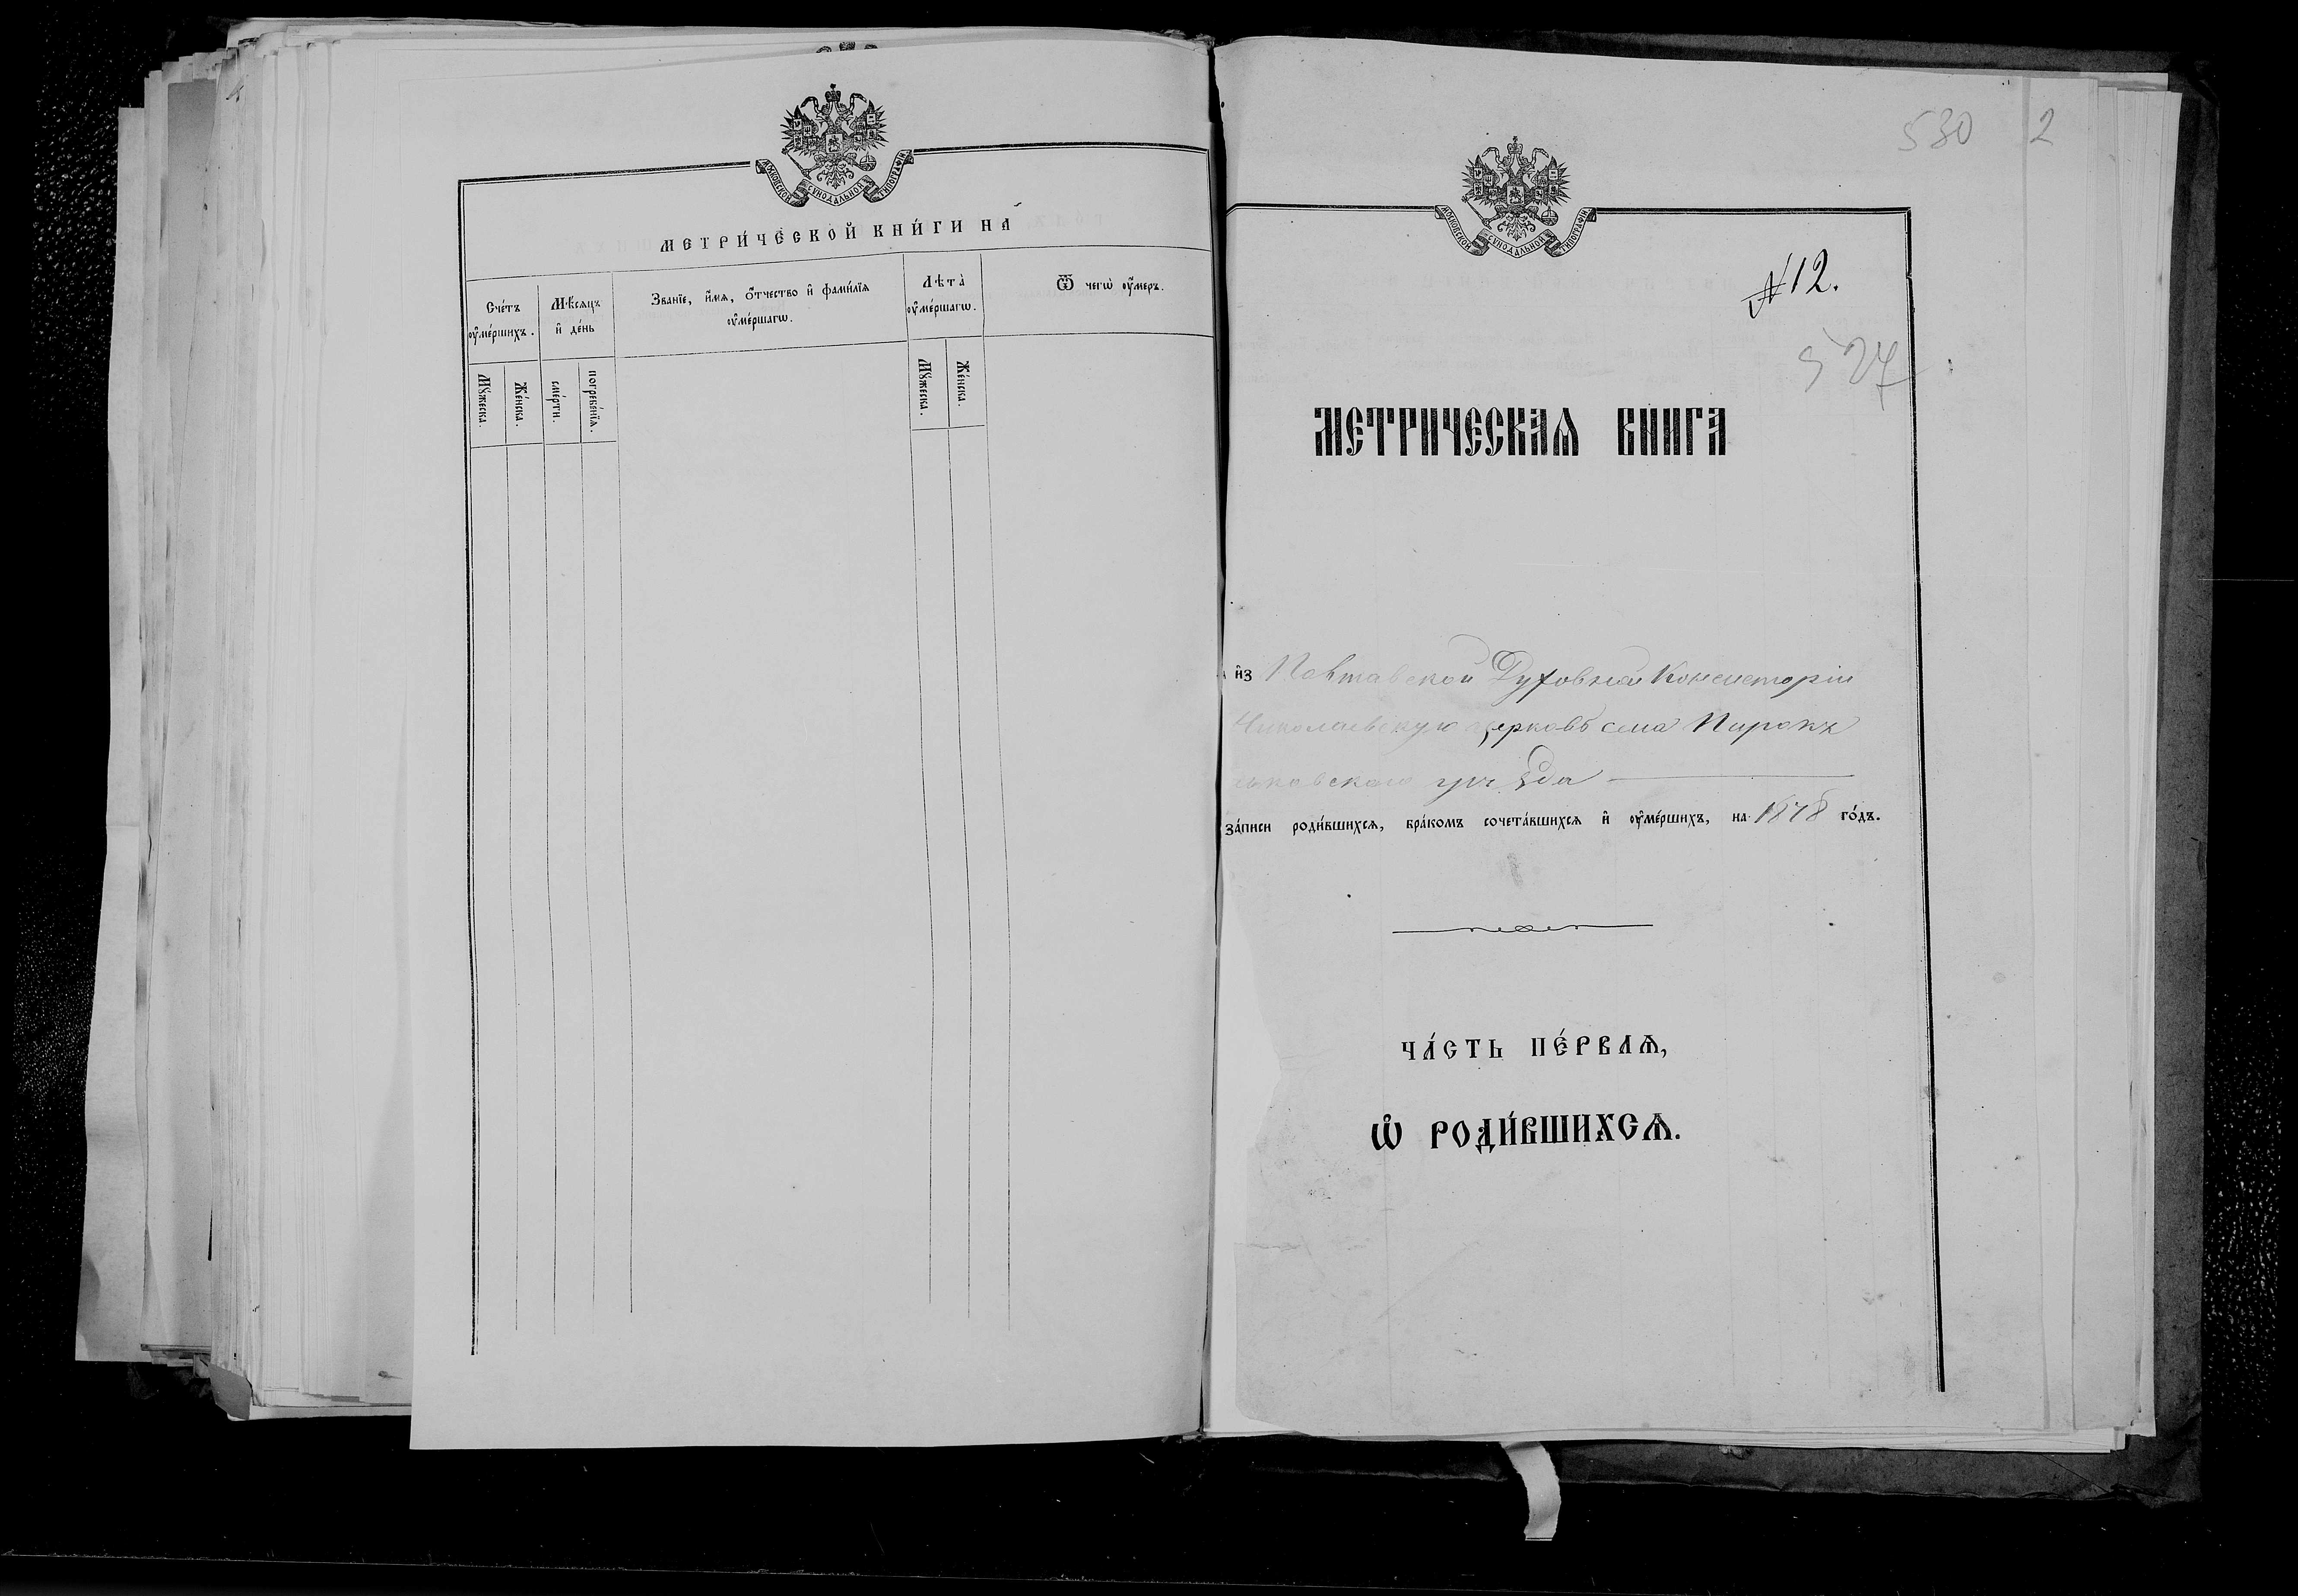 МОСКОВСКОЙ СУНОДАЛЬНОЙ ТИПОГРАФІИ
МЕТРИ́ЧЕСКОЙ КНИ́ГИ НА
Сче́тъ ᲂу҆ме́ршихъ.
Мѣ́сяцъ и҆ де́нь
Зва́нїе, и҆́мѧ, ѻ҆́тчество и҆ фами́лїѧ ᲂу҆ме́ршагѡ.
Лѣта̀ ᲂу҆ме́ршагѡ.
Ѿ чегѡ̀ ᲂу҆́меръ.
Мꙋ́жеска.
Же́нска.
сме́рти.
погребе́нїѧ.
Мꙋ́жеска.
Же́нска.
530 2
МОСКОВСКОЙ СУНОДАЛЬНОЙ ТИПОГРАФІИ
№12.
527
МЕТРИЧЕСКАѦ КНИГА
и҆з Полтавской Духовной Консисторіи
Николаевскую церковь села Пирокъ
ьковскаго уѣзда
за́писи роди́вшихсѧ, бра́комъ сочета́вшихсѧ и҆ ᲂу҆ме́ршихъ, на 1878 го́дъ.
ЧА́СТЬ ПЕ́РВАѦ,
Ѽ РОДИ́ВШИХСѦ.